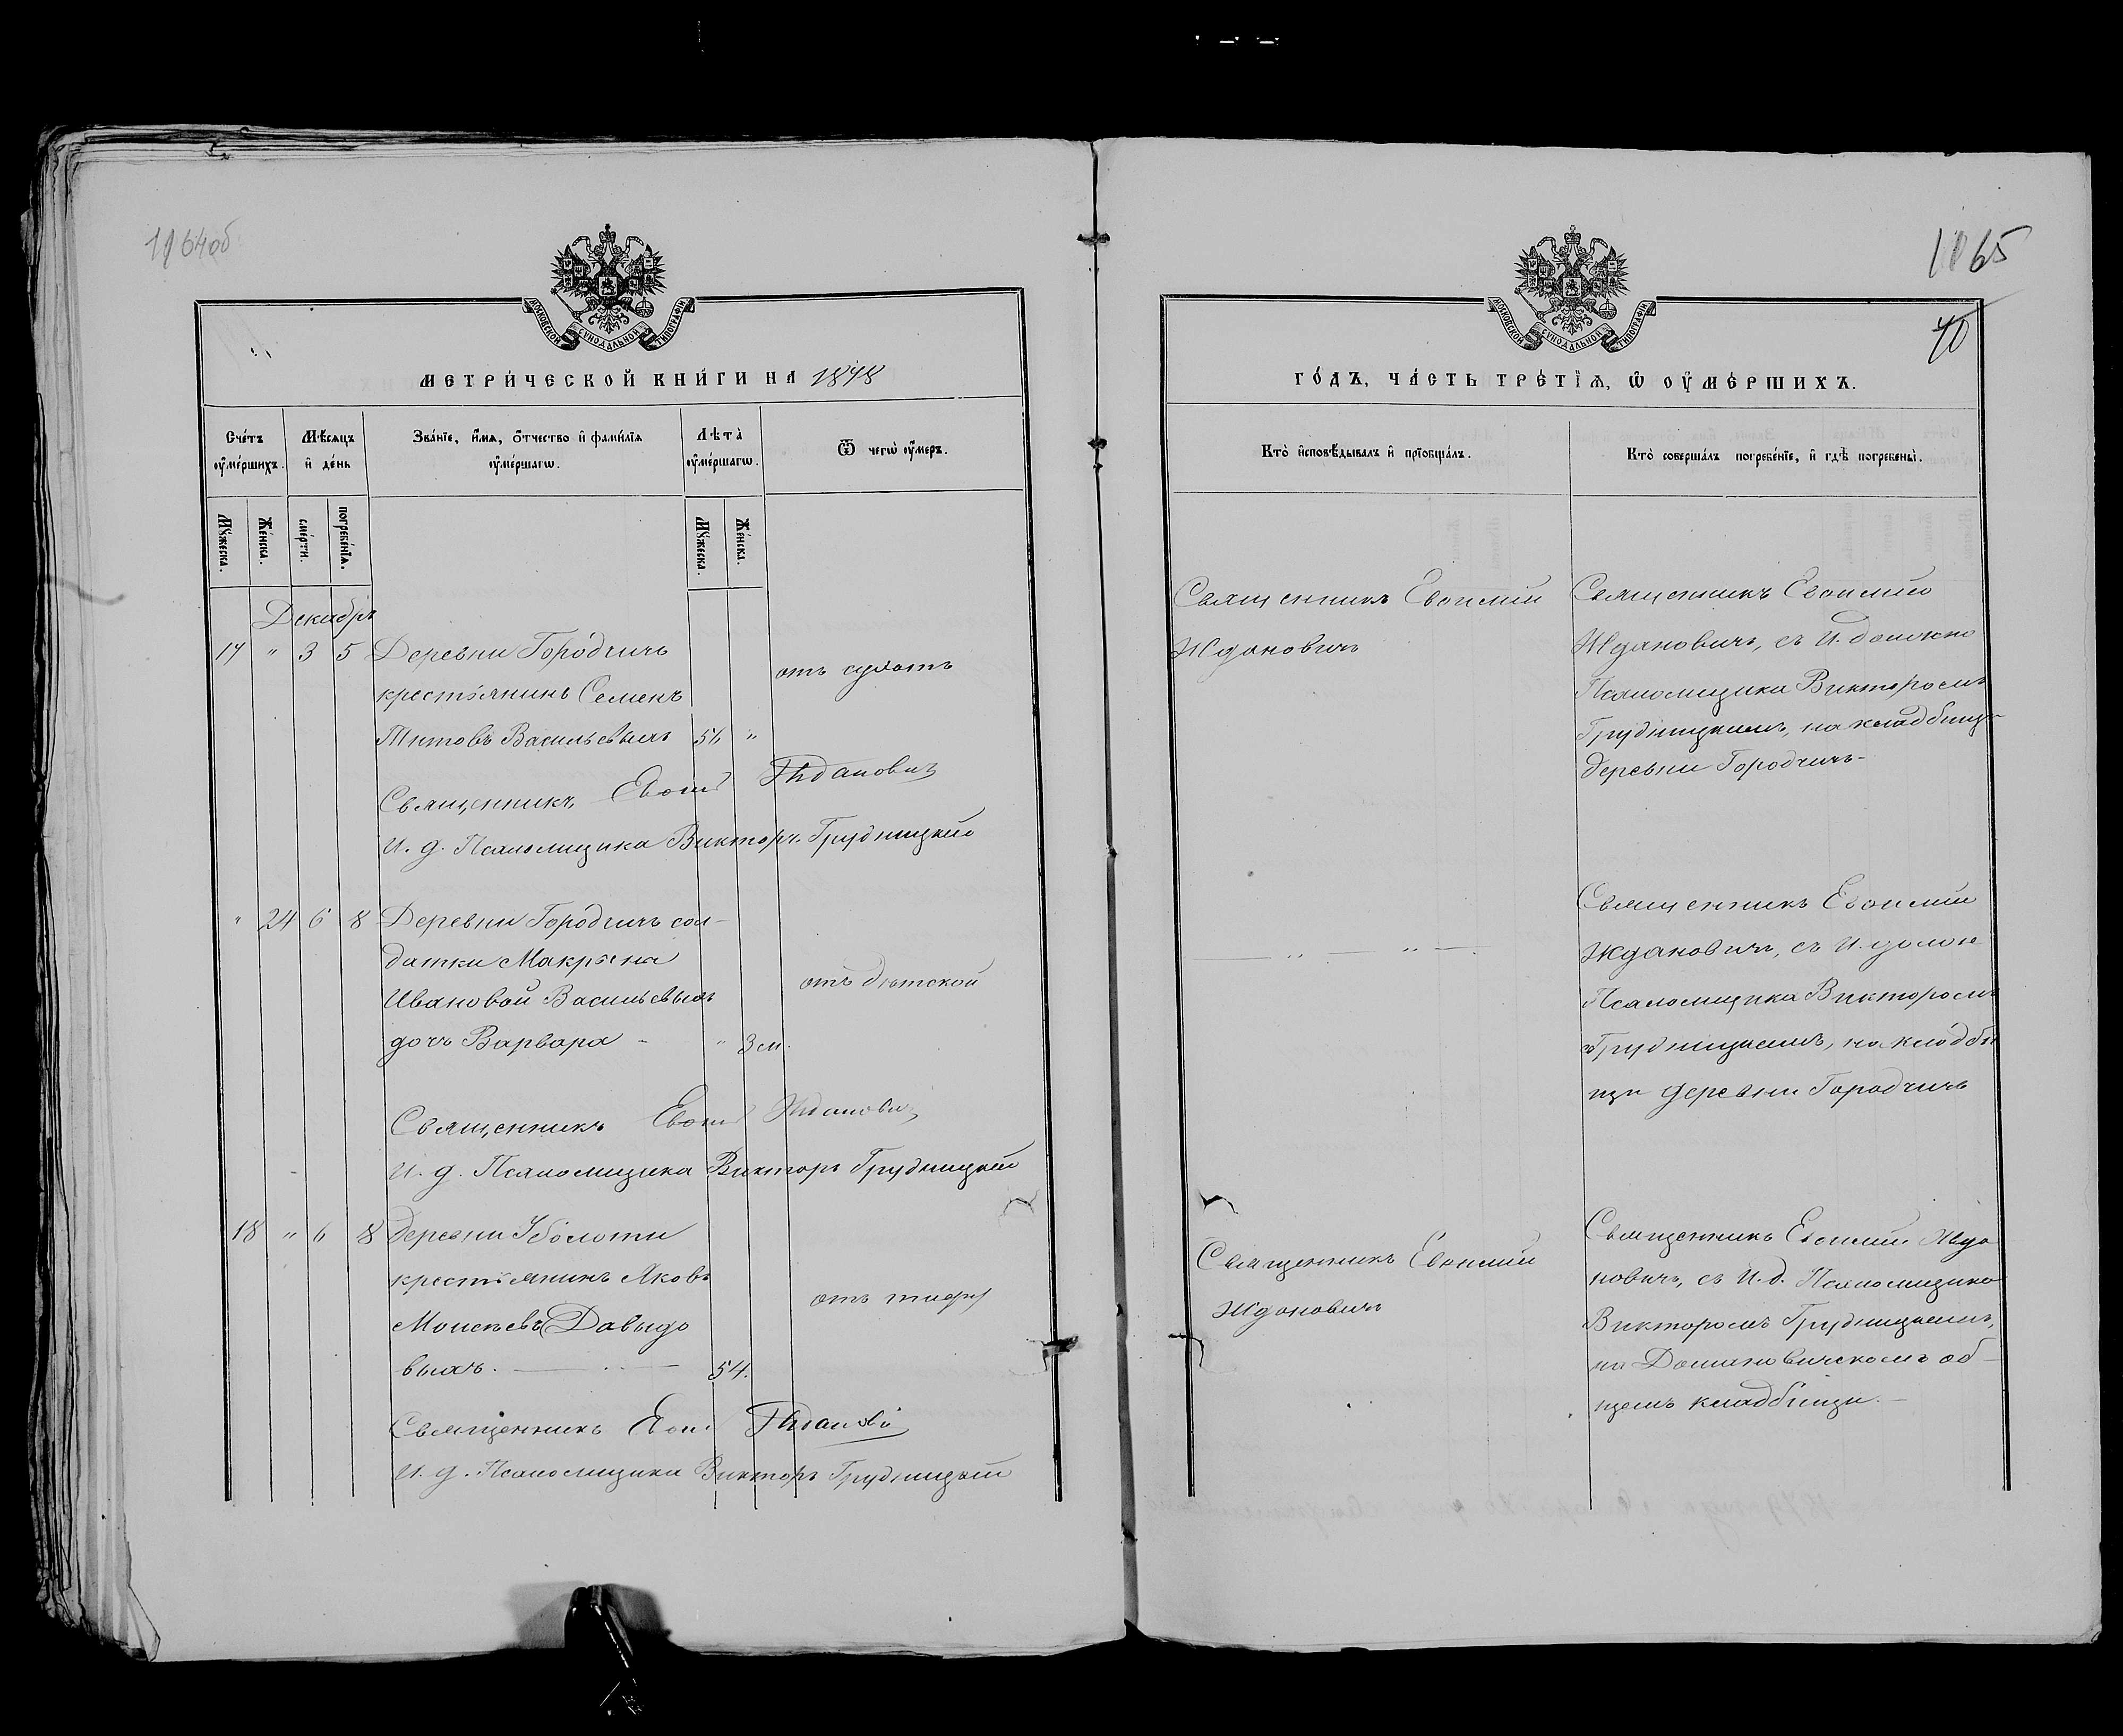 1164об
МОСКОВСКОЙ СѴНОДАЛЬНОЙ ТИПОГРАФІИ
МЕТРИ́ЧЕСКОЙ КНИ́ГИ НА 1878
Сче́тъ оу҆ме́ршихъ.
Мѣ́сѧцъ и҆ де́нь
Зва́нїе, и҆́мѧ, ѻ҆́тчество и҆ фами́лїѧ оу҆ме́ршагѡ.
Лѣ́та̀ оу҆ме́ршагѡ.
Ѿ чегѡ̀ оу҆́меръ.
Мꙋ́жеска.
Же́нска.
сме́рти.
погребе́нїѧ.
Мꙋ́жеска.
Же́нска.
Декабрь
17 " 3 5 Деревни Городчичъ
крестьянинъ Семенъ
Титовъ Васильевыхъ 56 "
отъ сухотъ
Священникъ Евѳимій Ждановичъ
И. д. Псаломщика Викторъ Грудницкій
" 24 6 8 Деревни Городчичъ сол-
датки Макрина
Ивановой Васильевыхъ
дочь Варвара - " 3 м.
отъ дѣтской
Священникъ Евѳимій Ждановичъ
И. д. Псаломщика Викторъ Грудницкій
18 " 6 8 деревни Уболоти
крестьянинъ Яковъ
Моисеевъ Давыдо
выхъ. 54.
отъ тифу
Священникъ Ждановичъ
И. д. Псаломщика Викторъ Грудницкій
1165
40
МОСКОВСКОЙ СѴНОДАЛЬНОЙ ТИПОГРАФІИ
ГО́ДЪ, ЧА́СТЬ ТРЕ́ТЇѦ, Ѡ҆ ОУ҆МЕ́РШИХЪ.
Кто̀ и҆сповѣ́дывалъ и҆ прїобща́лъ.
Кто̀ соверша́лъ погребе́нїе, и҆ гдѣ̀ погребены̀.
Священникъ Евѳимій
Ждановичъ
Священникъ Евѳимій
Ждановичъ, съ И. должно
Псаломщика Викторомъ
Грудницкимъ, на кладбищѣ
деревни Городчичъ-
Священникъ Евѳимій
Ждановичъ, съ И. должн
Псаломщика Викторомъ
Грудницкимъ, на кладби
щи деревни Городчичъ
Священникъ Евѳимій
Ждановичъ
Священникъ Евѳимій Жда
новичъ, съ И. д. Псаломщика
Викторомъ Грудницкимъ,
на Домановичскомъ об-
щемъ кладбищи.-